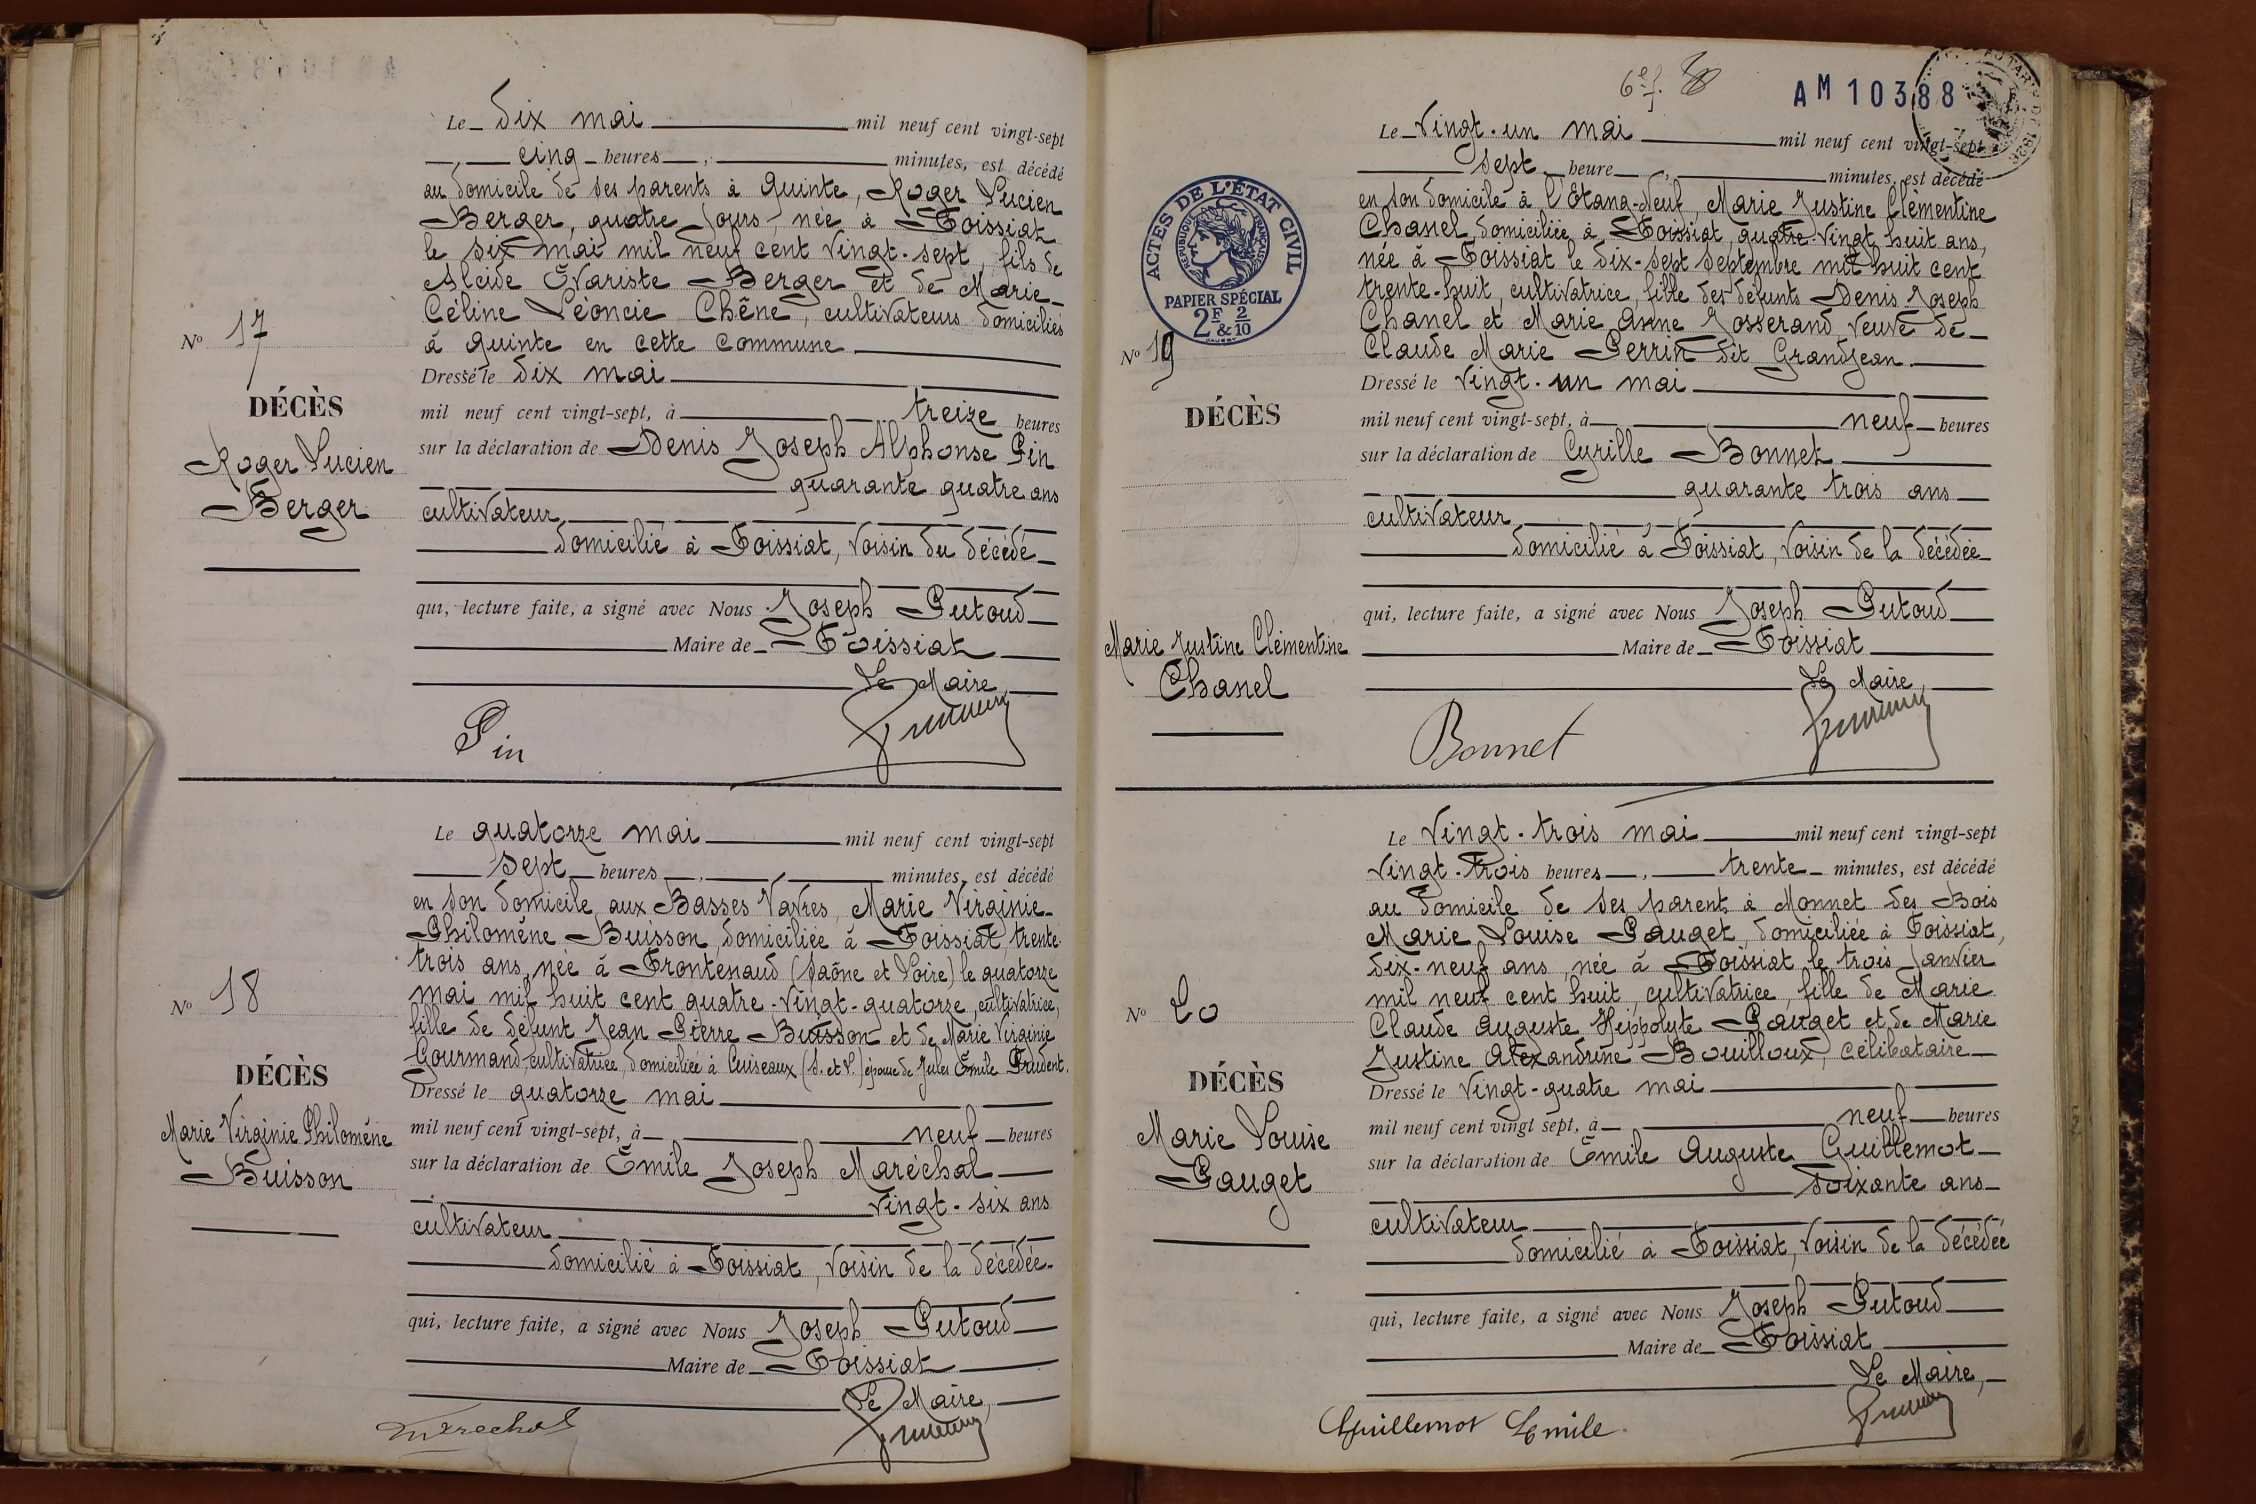 Le dix mai mil neuf cent vingt-sept
cinq heures minutes, est décédé
au domicile de ses parents à Quinte, Roger Lucien
Berger, quatre jours, née à Foissiat
le six mai mil neuf cent vingt-sept, fils de
Alcide Évariste Berger et de Marie
Céline Léoncie Chêne, cultivateurs domiciliés
à Quinte en cette commune
Dressé le dix mai
mil neuf cent vingt-sept, à treize heures
sur la déclaration de Denis Joseph Alphonse Pin
quarante quatre ans
cultivateur
domicilié à Foissiat, voisin du décédé
qui, lecture faite, a signé avec Nous Joseph Putoud
Maire de Foissiat
Le Maire
Pin
N° 17
DÉCÈS
Roger Lucien
Berger
Le quatorze mai mil neuf cent vingt-sept
sept heures minutes, est décédé
en son domicile aux Basses Vavres, Marie Virginie
Philomène Buisson, domiciliée à Foissiat, trente
trois ans, née à Frontenaud (Saône et Loire) le quatorze
mai mil huit cent quatre-vingt-quatorze, cultivatrice,
fille de défunt Jean Pierre Buisson et de Marie Virginie
Gourmand, cultivatrice, domiciliée à Cuiseaux (S. et L.) épouse de Jules Émile Prudent.
Dressé le quatorze mai
mil neuf cent vingt-sept, à neuf heures
sur la déclaration de Émile Joseph Maréchal
vingt-six ans
cultivateur
domicilié à Foissiat, voisin de la décédée
qui, lecture faite, a signé avec Nous Joseph Putoud
Maire de Foissiat
Le Maire,
Marechal
N° 18
DÉCÈS
Marie Virginie Philomène
Buisson
6e f.
AM 10388
Le vingt-un mai mil neuf cent vingt-sept
sept heure minutes, est décédé
en son domicile à l'Étang-Neuf, Marie Justine Clémentine
Chanel, domiciliée à Foissiat, quatre-vingt huit ans,
née à Foissiat le dix-sept septembre mil huit cent
trente-huit, cultivatrice, fille des défunts Denis Joseph
Chanel et Marie Anne Josserand veuve de
Claude Marie Perrin dit Grandjean
Dressé le vingt-un mai
mil neuf cent vingt-sept, à neuf heures
sur la déclaration de Cyrille Bonnet
quarante trois ans
cultivateur
domicilié à Foissiat, voisin de la décédée
qui, lecture faite, a signé avec Nous Joseph Putoud
Maire de Foissiat
Le Maire,
Bonnet
ACTES DE L'ÉTAT CIVIL
RÉPUBLIQUE FRANÇAISE
PAPIER SPÉCIAL
2F & 2/10
N° 19
DÉCÈS
Marie Justine Clémentine
Chanel
Le vingt-trois mai mil neuf cent vingt-sept
vingt-trois heures trente minutes, est décédé
au domicile de ses parents à Monnet des Bois
Marie Louise Pauget, domiciliée à Foissiat,
dix-neuf ans, née à Foissiat le trois janvier
mil neuf cent huit, cultivatrice, fille de Marie
Claude Auguste Hippolyte Pauget et de Marie
Justine Alexandrine Bouilloux, célibataire
Dressé le vingt-quatre mai
mil neuf cent vingt sept, à neuf heures
sur la déclaration de Émile Auguste Guillemot
soixante ans
cultivateur
domicilié à Foissiat, voisin de la décédée
qui, lecture faite, a signé avec Nous Joseph Putoud
Maire de Foissiat
Le Maire,
Guillemot Emile.
N° 20
DÉCÈS
Marie Louise
Pauget